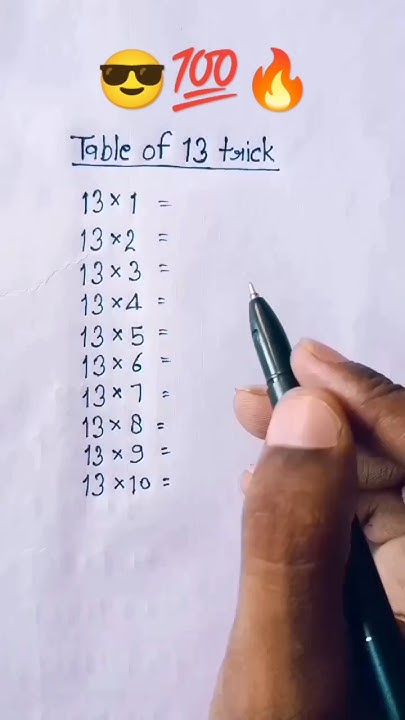 💯
Table of 13 trick
13 × 1 =
13 × 2 =
13 × 3 =
13 × 4 =
13 × 5 =
13 × 6 =
13 × 7 =
13 × 8 =
13 × 9 =
13 × 10 =